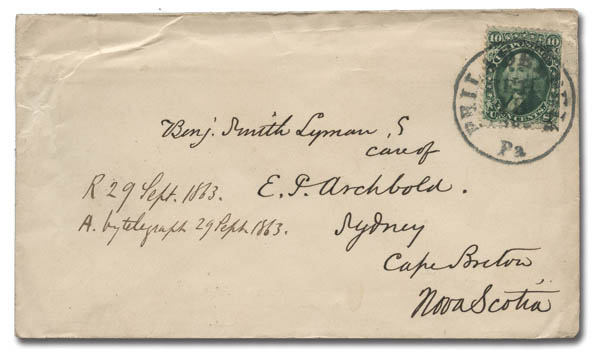 10 10
U.S. POSTAGE
TEN CENTS
PHILADELPHIA
Pa
Benj. Smith Lyman,
care of
R 29 Sept. 1863.
E. P. Archbold.
A. by telegraph 29 Sept. 1863.
Sydney
Cape Breton
Nova Scotia